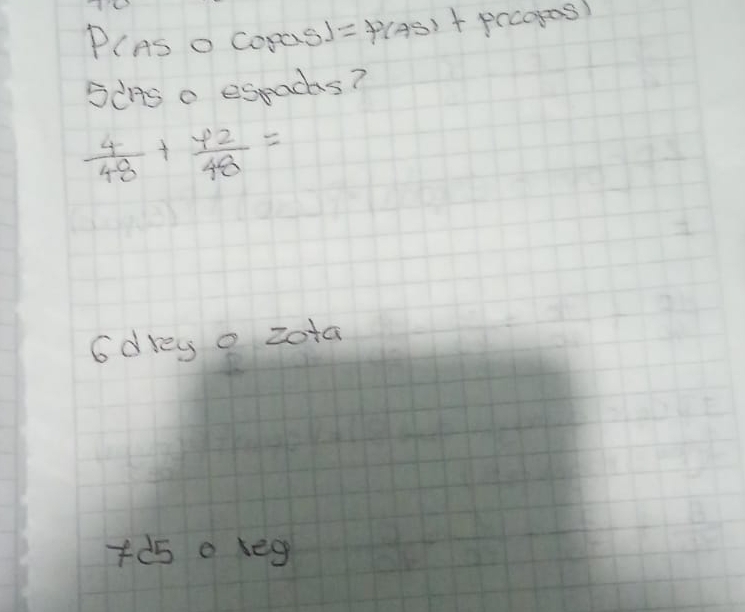 P(AS o copas) = P(AS) + P(copas)
5¿AS o espadas?
4/48 + 12/48 =
6¿rey o zota
7¿5 o rey